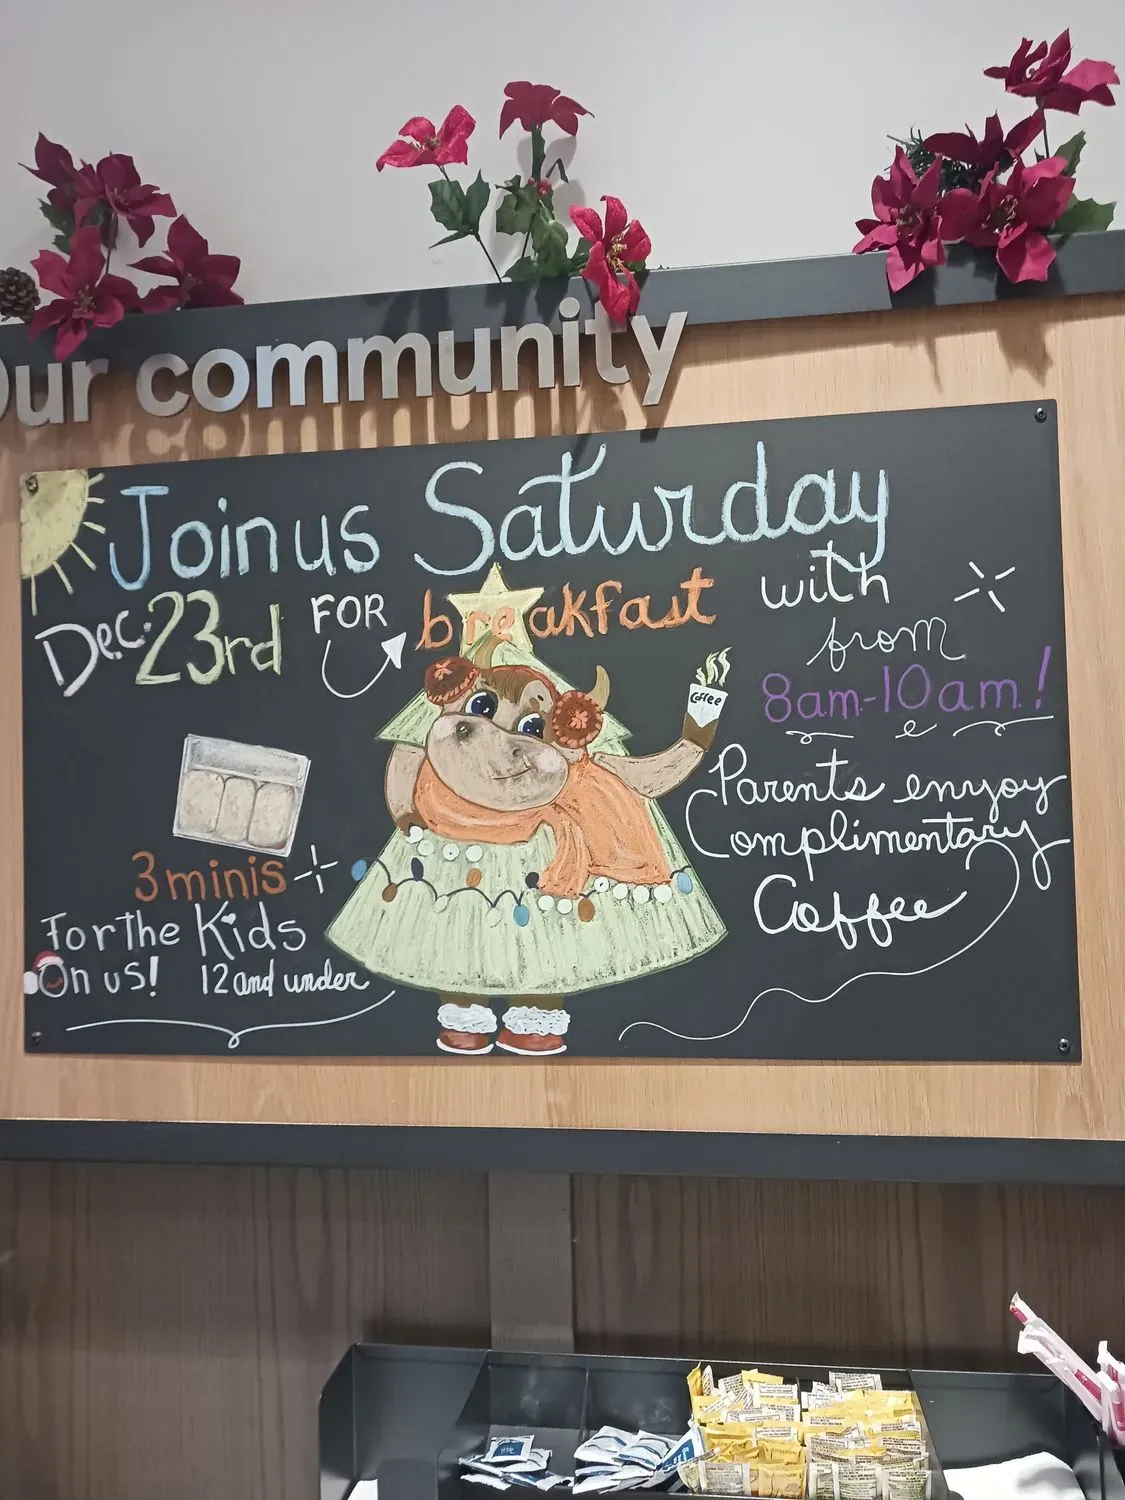 Our community
Join us Saturday
Dec. 23rd FOR breakfast with
from
8am-10am!
Coffee
Parents enyoy
Complimentary
Coffee
3 minis
For the Kids
On us! 12 and under